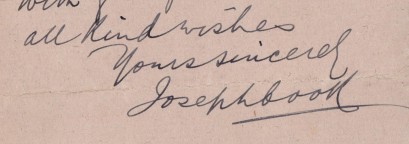 with
all kind wishes
Yours sincerely
Joseph Cook